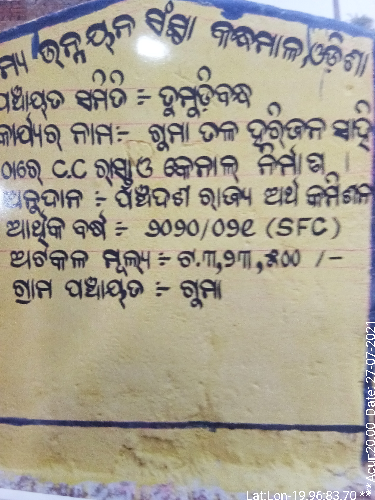 ମ୍ୟ ଉନ୍ନୟନ ସଂସ୍ଥା କନ୍ଧମାଳ,ଓଡ଼ିଶା
ପଞ୍ଚାୟତ ସମିତି :- ତୁମୁଡ଼ିବନ୍ଧ
କାର୍ଯ୍ୟର ନାମ:- ଗୁମା ତଳ ହରିଜନ ସାହି
ଠାରେ C.C ରାସ୍ତା ଓ କେନାଲ୍ ନିର୍ମାଣ ।
ଅନୁଦାନ :- ପଞ୍ଚଦଶ ରାଜ୍ୟ ଅର୍ଥ କମିଶନ
ଆର୍ଥିକ ବର୍ଷ :- ୨୦୨୦/୦୨୧ (SFC)
ଅଟକଳ ମୂଲ୍ୟ :- ଟ.୩,୨୩,୫୦୦ /-
ଗ୍ରାମ ପଞ୍ଚାୟତ :- ଗୁମା
Lat:Lon-19.96:83.70 ** Acur:20.00 Date: 27-07-2021